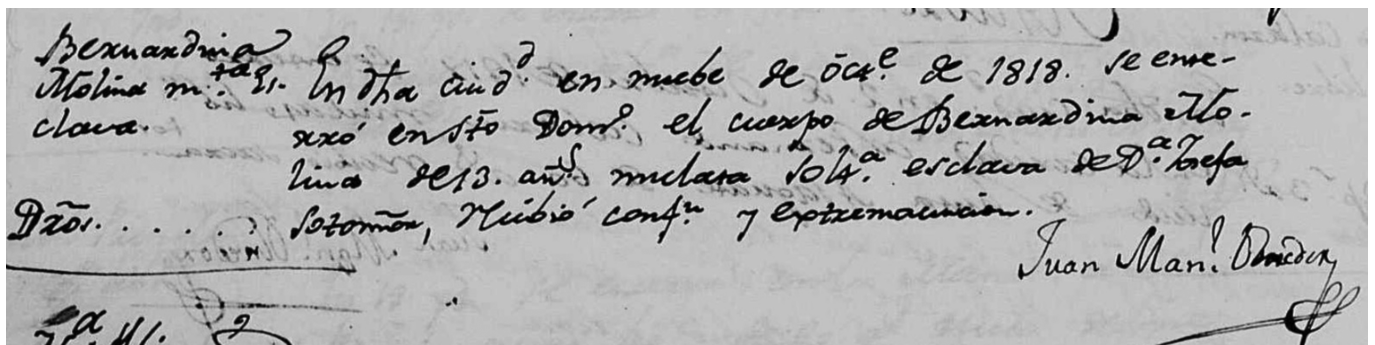 Bernardina
Molina m.ta es-
clava.
En dha ciud.d en nuebe de Octe. de 1818. se ente-
rró en Sto Domo. el cuerpo de Bernardina Mo-
lina de 13. ans mulata solta. esclava de Da. Josefa
Sotomor, recibió confn. y extremauncion.
Dros. . . . . .
Juan Manl.